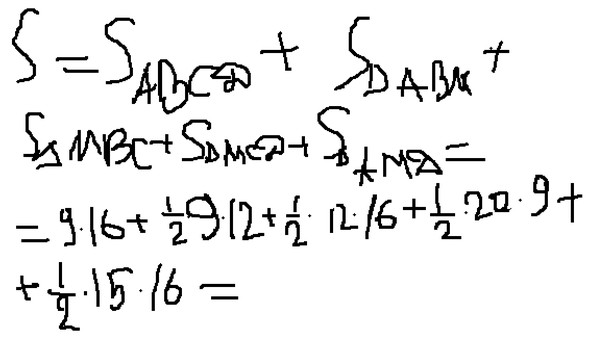 S = S_ABCD + S_DABM +
S_ΔMBC + S_DMCD + S_ΔAMD =
= 9·16 + 1/2 9·12 + 1/2 · 12·16 + 1/2 · 20·9 +
+ 1/2 · 15·16 =